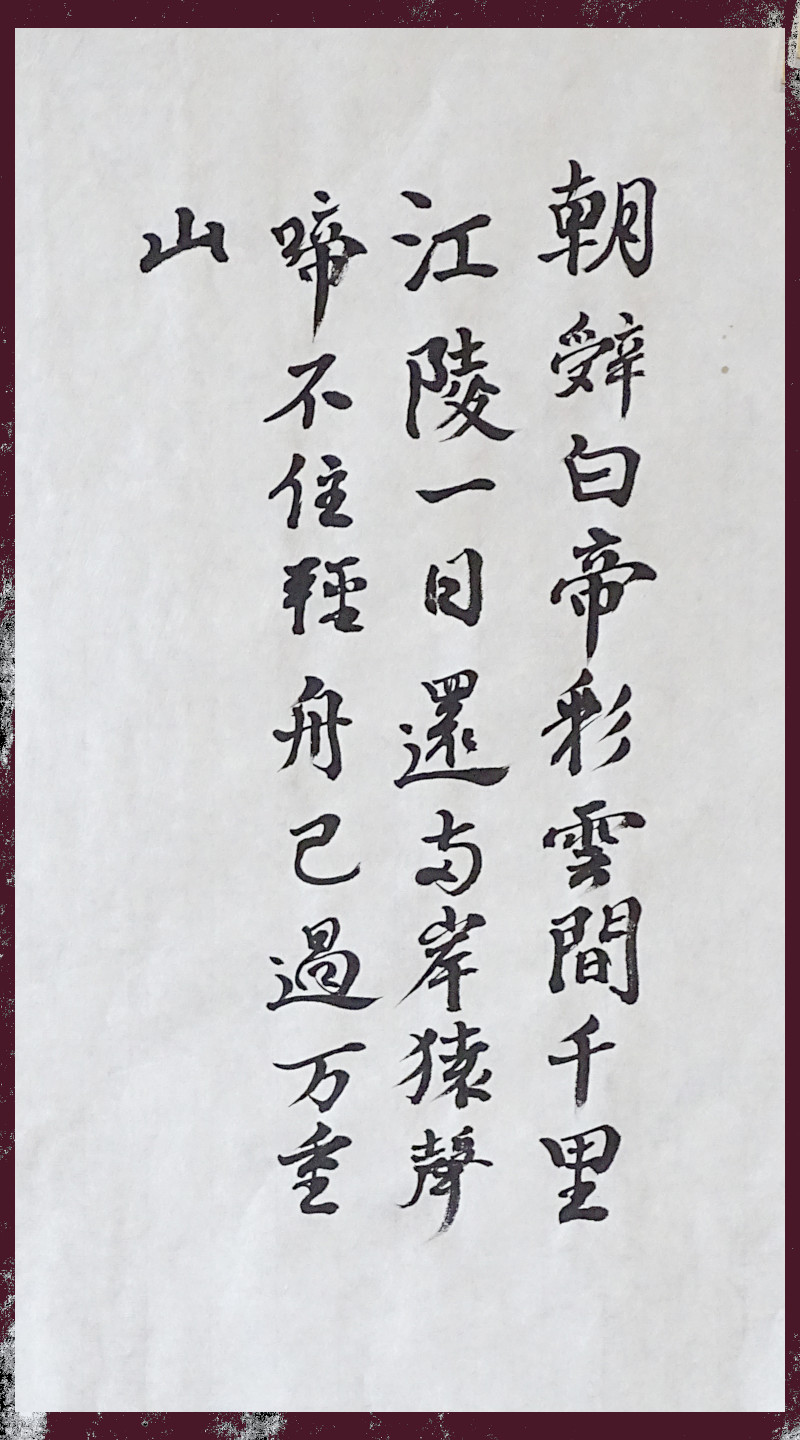 朝辤白帝彩雲間千里
江陵一日還两岸猿聲
啼不住輕舟已過万重
山